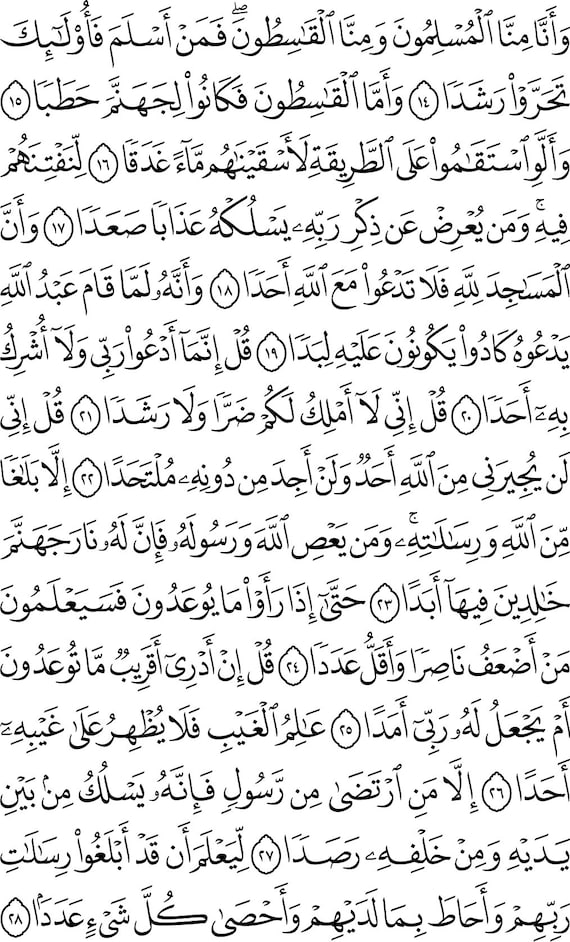 وَأَنَّا مِنَّا ٱلْمُسْلِمُونَ وَمِنَّا ٱلْقَٰسِطُونَ ۖ فَمَنْ أَسْلَمَ فَأُو۟لَٰٓئِكَ
تَحَرَّوْا۟ رَشَدًا ١٤ وَأَمَّا ٱلْقَٰسِطُونَ فَكَانُوا۟ لِجَهَنَّمَ حَطَبًا ١٥
وَأَلَّوِ ٱسْتَقَٰمُوا۟ عَلَى ٱلطَّرِيقَةِ لَأَسْقَيْنَٰهُم مَّآءً غَدَقًا ١٦ لِّنَفْتِنَهُمْ
فِيهِ ۚ وَمَن يُعْرِضْ عَن ذِكْرِ رَبِّهِۦ يَسْلُكْهُ عَذَابًا صَعَدًا ١٧ وَأَنَّ
ٱلْمَسَٰجِدَ لِلَّهِ فَلَا تَدْعُوا۟ مَعَ ٱللَّهِ أَحَدًا ١٨ وَأَنَّهُۥ لَمَّا قَامَ عَبْدُ ٱللَّهِ
يَدْعُوهُ كَادُوا۟ يَكُونُونَ عَلَيْهِ لِبَدًا ١٩ قُلْ إِنَّمَآ أَدْعُوا۟ رَبِّى وَلَآ أُشْرِكُ
بِهِۦٓ أَحَدًا ٢٠ قُلْ إِنِّى لَآ أَمْلِكُ لَكُمْ ضَرًّا وَلَا رَشَدًا ٢١ قُلْ إِنِّى
لَن يُجِيرَنِى مِنَ ٱللَّهِ أَحَدٌ وَلَنْ أَجِدَ مِن دُونِهِۦ مُلْتَحَدًا ٢٢ إِلَّا بَلَٰغًا
مِّنَ ٱللَّهِ وَرِسَٰلَٰتِهِۦ ۚ وَمَن يَعْصِ ٱللَّهَ وَرَسُولَهُۥ فَإِنَّ لَهُۥ نَارَ جَهَنَّمَ
خَٰلِدِينَ فِيهَآ أَبَدًا ٢٣ حَتَّىٰٓ إِذَا رَأَوْا۟ مَا يُوعَدُونَ فَسَيَعْلَمُونَ
مَنْ أَضْعَفُ نَاصِرًا وَأَقَلُّ عَدَدًا ٢٤ قُلْ إِنْ أَدْرِىٓ أَقَرِيبٌ مَّا تُوعَدُونَ
أَمْ يَجْعَلُ لَهُۥ رَبِّىٓ أَمَدًا ٢٥ عَٰلِمُ ٱلْغَيْبِ فَلَا يُظْهِرُ عَلَىٰ غَيْبِهِۦٓ
أَحَدًا ٢٦ إِلَّا مَنِ ٱرْتَضَىٰ مِن رَّسُولٍ فَإِنَّهُۥ يَسْلُكُ مِنۢ بَيْنِ
يَدَيْهِ وَمِنْ خَلْفِهِۦ رَصَدًا ٢٧ لِّيَعْلَمَ أَن قَدْ أَبْلَغُوا۟ رِسَٰلَٰتِ
رَبِّهِمْ وَأَحَاطَ بِمَا لَدَيْهِمْ وَأَحْصَىٰ كُلَّ شَىْءٍ عَدَدًۢا ٢٨